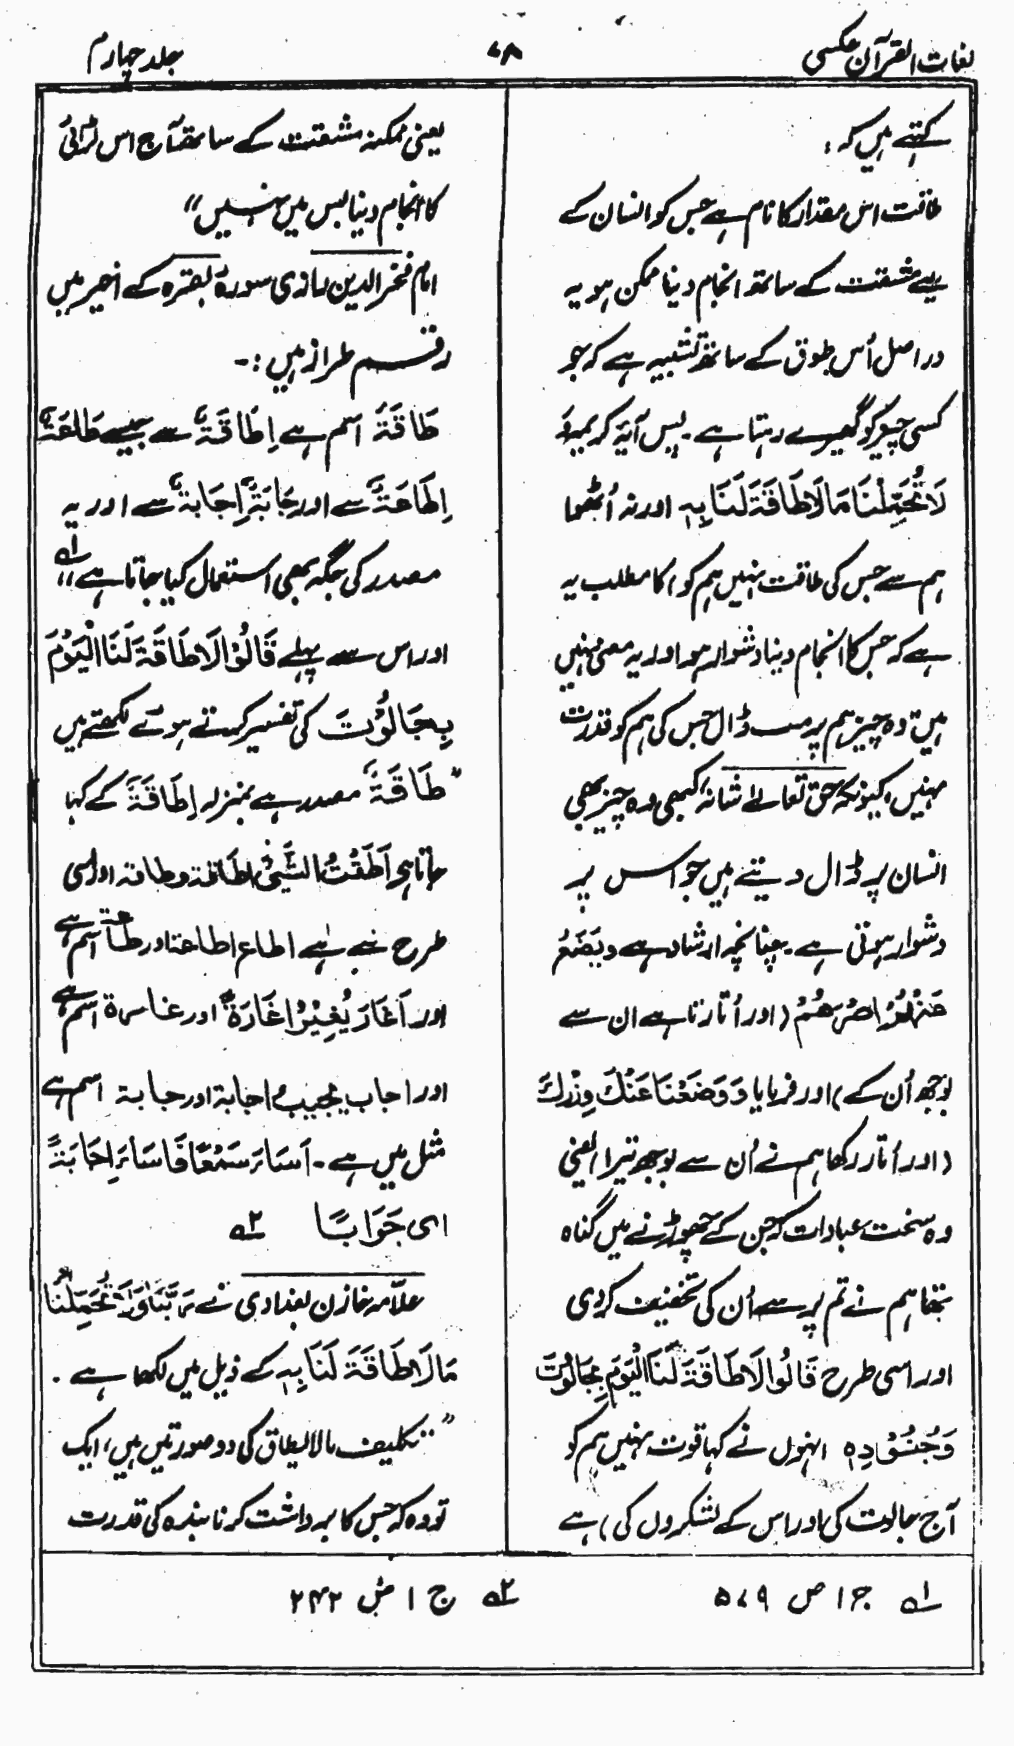 لغات القرآن عکسی
۷۸
جلد چہارم
کہتے ہیں کہ :
طاقت اس مقدار کا نام ہے جس کو انسان کے
لیے مشقت کے ساتھ انجام دینا ممکن ہو یہ
در اصل اُس طوق کے ساتھ تشبیہ ہے کہ جو
کسی چیز کو گھیرے رہتا ہے ۔ پس آیۂ کریمہ وَ
لَا تُحَمِّلْنَا مَا لَا طَاقَةَ لَنَا بِهٖ اور نہ اُٹھوا
ہم سے جس کی طاقت نہیں ہم کو) کا مطلب یہ
ہے کہ جس کا انجام دینا دشوار ہو اور یہ معنی نہیں
ہیں وہ چیز ہم پر مت ڈال جس کی ہم کو قدرت
نہیں کیونکہ حق تعالےٰ شانہ کبھی وہ چیز بھی
انسان پر ڈال دیتے ہیں جو اس پر
دشوار ہوتی ہے ۔ چنانچہ ارشاد ہے وَيَضَعُ
عَنْهُمْ اِصْرَهُمْ (اور اُتارتا ہے ان سے
بوجھ اُن کے) اور فرمایا وَوَضَعْنَا عَنْكَ وِزْرَكَ
(اور اُتار رکھا ہم نے اُن سے بوجھ تیرا) یعنی
وہ سخت عبادات کہ جن کے چھوڑنے میں گناہ
تھا ہم نے تم پر سے اُن کی تخفیف کر دی
اور اسی طرح قَالُوْا لَا طَاقَةَ لَنَا الْيَوْمَ بِجَالُوْتَ
وَجُنُوْدِهٖ انہوں نے کہا قوت نہیں ہم کو
آج جالوت کی اور اس کے لشکروں کی) ہے
یعنی ممکنہ مشقت کے ساتھ آج اس لڑائی
کا انجام دینا بس میں نہیں"
امام فخر الدین رازی سورۂ بقرہ کے اخیر میں
رقم طراز ہیں :۔
طَاقَةٌ اسم ہے اِطَاقَةٌ سے جیسے طَاعَةٌ
اِطَاعَةٌ سے اور جَابَةٌ اِجَابَةٌ سے اور یہ
مصدر کی جگہ بھی استعمال کیا جاتا ہے"لہ
اور اس سے پہلے قَالُوْا لَا طَاقَةَ لَنَا الْيَوْمَ
بِجَالُوْتَ کی تفسیر کرتے ہوئے لکھتے ہیں
"طَاقَةٌ مصدر ہے بمنزلہ اِطَاقَةٌ کے کہا
جاتا ہے اَطَقْتُ الشَّیْءَ اطاقۃ وطاقۃ اور اسی
طرح سے ہے اطاع اطاعۃ اور طاعۃ اسم ہے
اور اَغَارَ يُغِيْرُ اِغَارَةً اور غارة اسم ہے
اور اجاب یجیب اجابة اور جابة اسم ہے
مثل میں ہے ۔ اَسَاءَ سَمْعًا فَاَسَاءَ اِجَابَةً
ای جَوَابًا ۲ہ
علّامہ خازن بغدادی نے رَبَّنَا وَلَا تُحَمِّلْنَا
مَا لَا طَاقَةَ لَنَا بِهٖ کے ذیل میں لکھا ہے ۔
"تکلیف مالایطاق کی دو صورتیں ہیں، ایک
تو وہ کہ جس کا برداشت کرنا بندہ کی قدرت
۱ہ ج ۱ ص ۵۷۹
۲ہ ج ۱ ص ۲۴۲